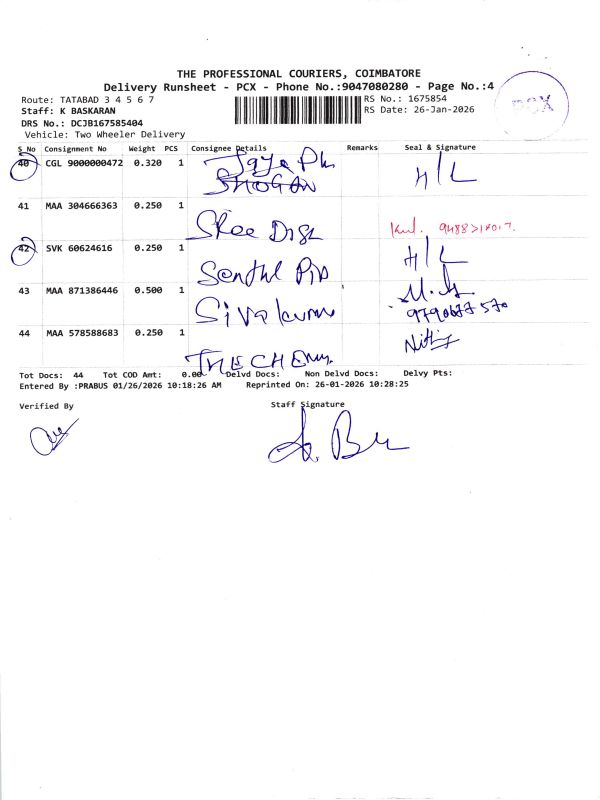 THE PROFESSIONAL COURIERS, COIMBATORE
Delivery Runsheet - PCX - Phone No.:9047080280 - Page No.:4
Route: TATABAD 3 4 5 6 7
RS No.: 1675854
Staff: K BASKARAN
RS Date: 26-Jan-2026
DRS No.: DCJB167585404
Vehicle: Two Wheeler Delivery
PCX
S_No Consignment No Weight PCS Consignee Details Remarks Seal & Signature
40 CGL 9000000472 0.320 1 Jaya Ph H/L
SHOGAN
41 MAA 304666363 0.250 1
Shee Disz
42 SVK 60624616 0.250 1 H/L
Senthil
43 MAA 871386446 0.500 1
Sivakumr
44 MAA 578588683 0.250 1 Nithiz
THE CHENN
Tot Docs: 44 Tot COD Amt: 0.00 Delvd Docs: Non Delvd Docs: Delvy Pts:
Entered By :PRABUS 01/26/2026 10:18:26 AM Reprinted On: 26-01-2026 10:28:25
Verified By Staff Signature